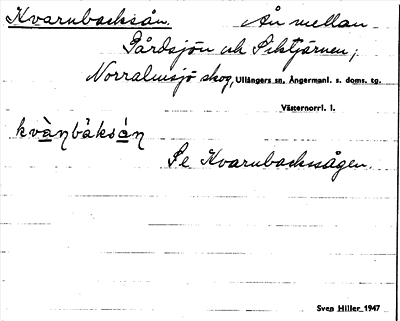 Kvarnbacksån. Ån mellan
Gårdsjön och Siktjärnen;
Norralmsjö skog, Ullångers sn, Ångermanl. s. doms. tg.
Västernorrl. l.
kvànbàksán
Se Kvarnbackssågen.
Sven Hiller 1947